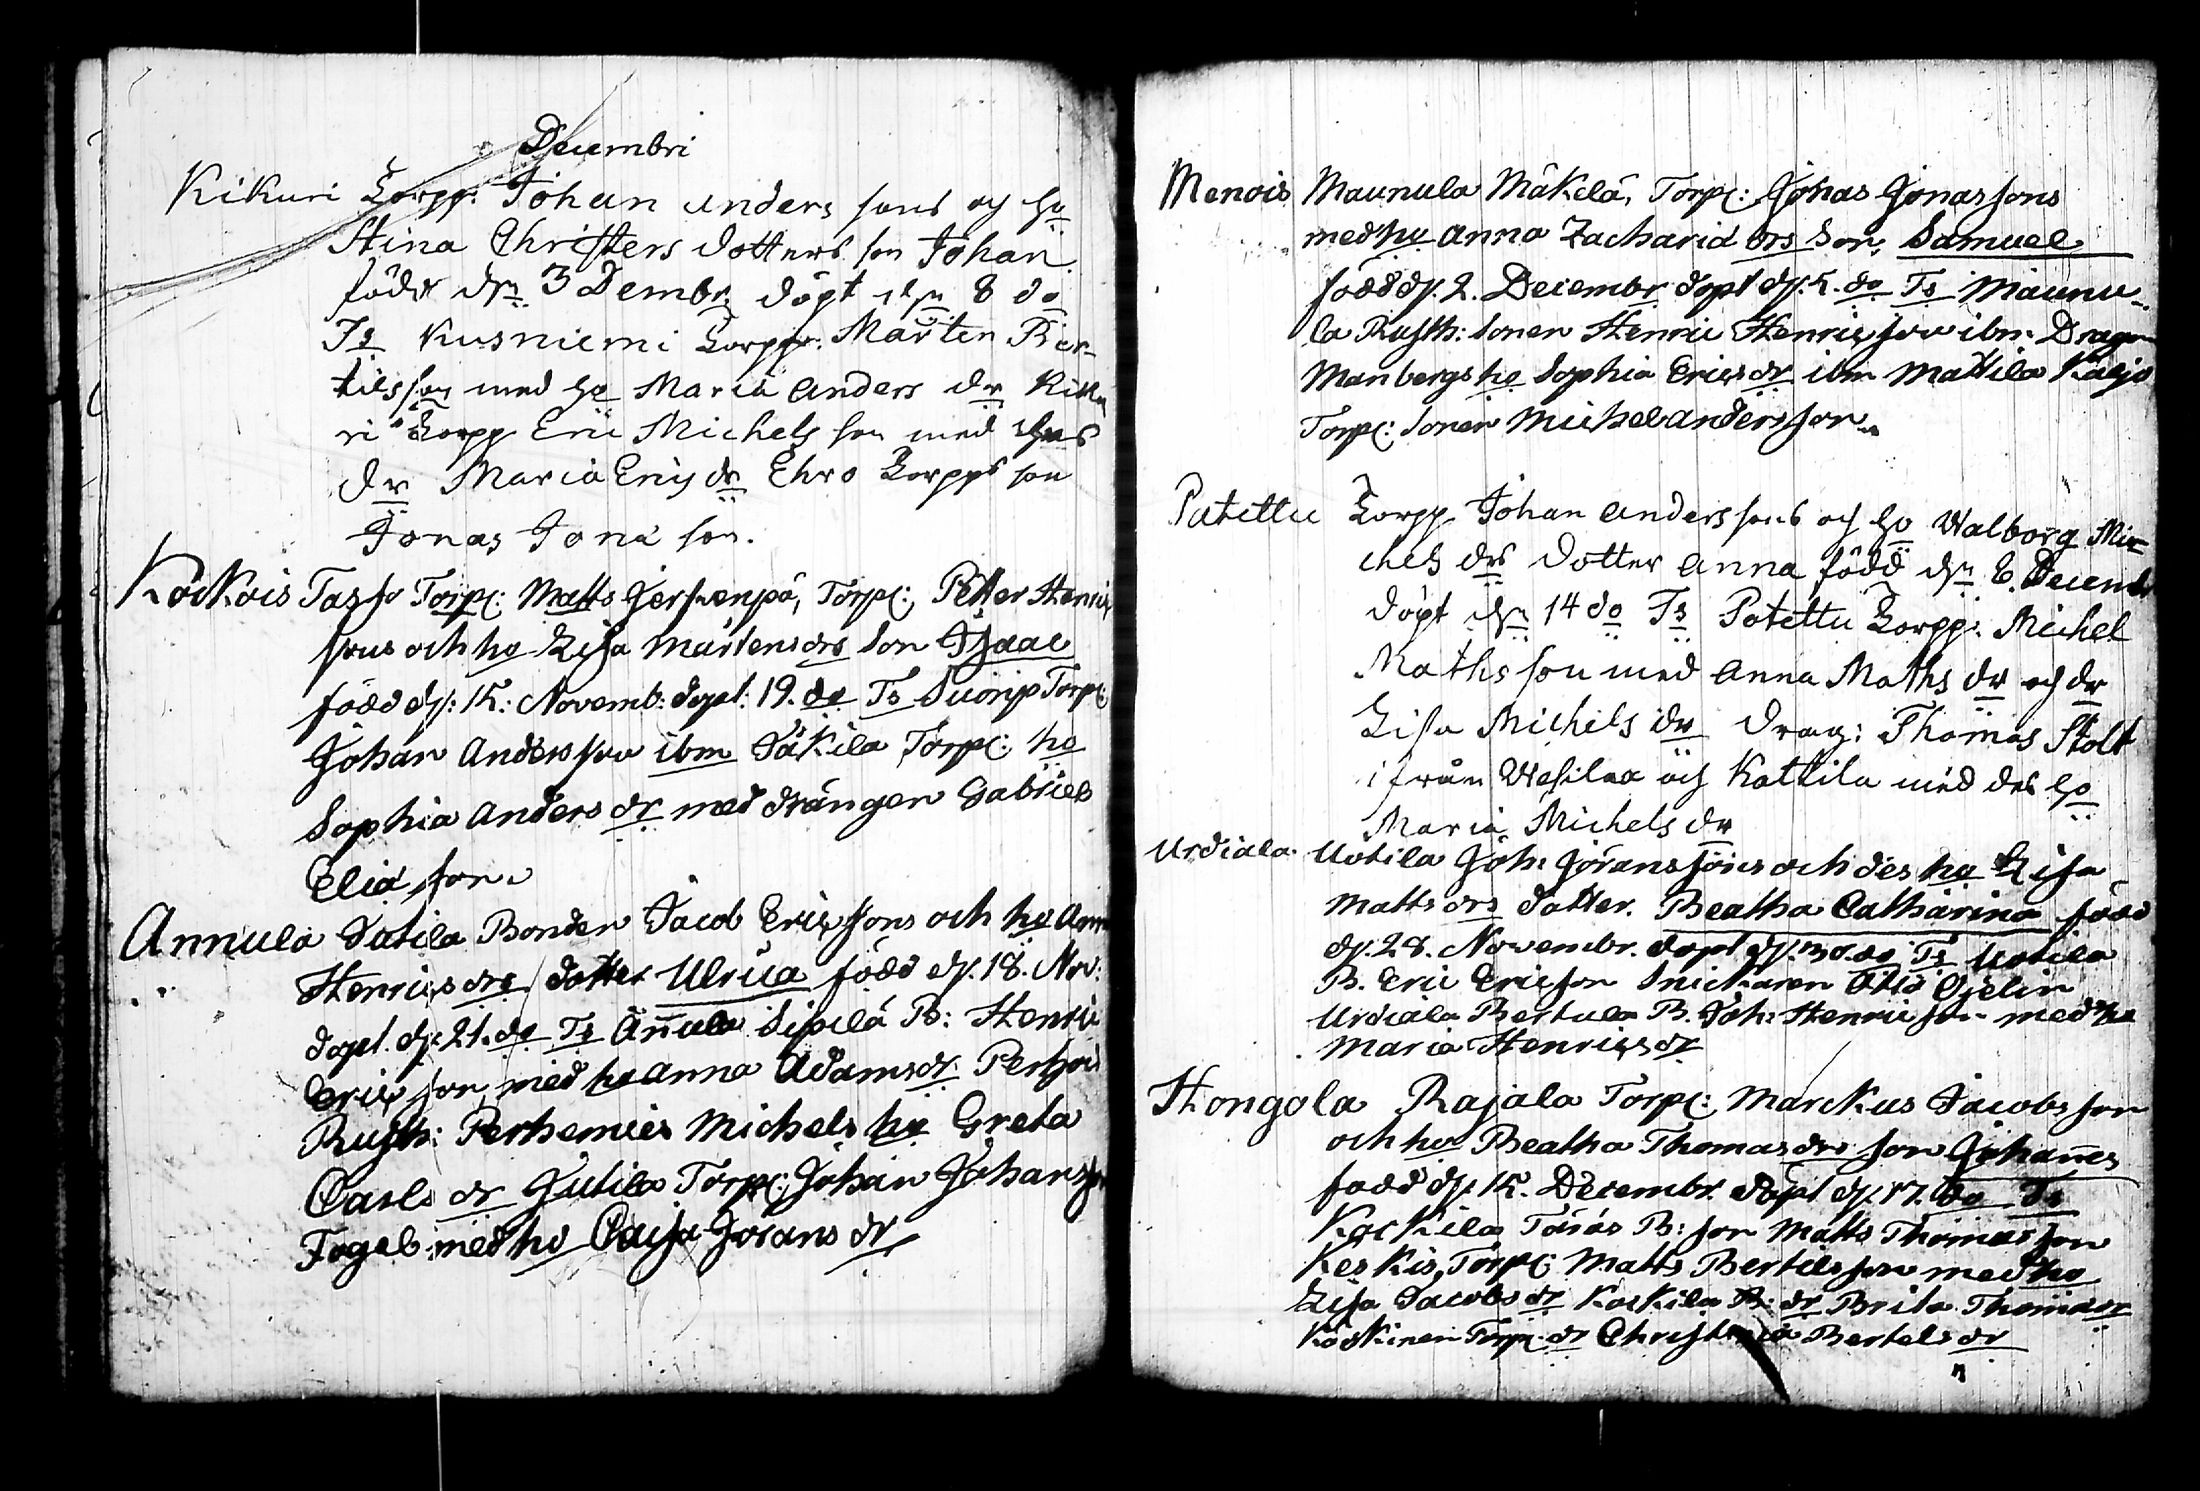 Decembri
Kikuri Torpp. Johan Anders sons och ho
Stina Christers dotters son Johan
född dn 3 Dembr. döpt dn 8 do
Ts Kusniemi Torppr. Mårten Ber-
tilsson med ho Maria Anders dr Kiku
ri Torpp Eric Michels son med hus
dr Maria Erics dr Ehro Torpps son
Jonas Jona son.
Kockois Tasso Torp: Matts Torp: Petter Henric
sons och ho Lisa Mårtens drs son Isaac
född d. 15. Novemb: döpt. 19. do Ts Suorip Torp:
Johan Andersson ibm Säkilä Torp: ho
Sophia Anders dr med drängen Gabriel
Elia son.
Annula Jutila Bonden Jacob Erics sons och ho Anna
Henrics drs dotter Ulrica född d. 18. Nov:
döpt. d. 21. do Ts Annula Sipilä B: Henric
Erics son, med ho Anna Adams dr. Perhoi
Rusth: Perhemies Michels ho Greta
Carls dr Jutila Torp: Johan Johansson
Fogel med ho Caisa Jörans dr
Menois Maunula Mäkelä, Torp: Jonas Jonas sons
med ho Anna Zacharia drs Son, Samuel
född d. 2. Decembr döpt d. 5. do Ts Maunu-
la Rusth: Sonen Henric Henrics son ibm Dragon
Manbergs ho Sophia Erics dr ibm Mattila Katjo
Torp: Sonen Michel Anders son
Patettu Torpp. Johan Anders sons och ho Walborg Mi-
chels drs Dotter Anna född dn 6. Decemb
döpt dn 14 do Ts Potettu Torpp: Michel
Mathsson med Anna Maths dr och dr
Lisa Michels dr Drag: Thomas Stolt
ifrån Wesilax och Kattila med des ho
Maria Michels dr
Urdiala Uotila Joh: Jörans sons och des ho Lisa
Matts drs dotter. Beatha Catharina född
d. 28. Novembr. döpt d. 30. do Ts Uotila
B. Eric Ericson Snickaren Ojelin
Urdiala Bertula B. Joh: Henric son med ho
Maria Henrics dr
Hongola Rajala Torp: Marckus Jacobs son
och ho Beatha Thomas drs son Johannes
född d. 15. Decembr. döpt d. 17. do Ts
Kockila B: son Matts Thomas son
Keskis, Torp: Matts Bertils son med ho
Lisa Jacobs dr Kockila B: dr Brita Thomas dr
Koskinen Torp: dr Christina Bertels dr